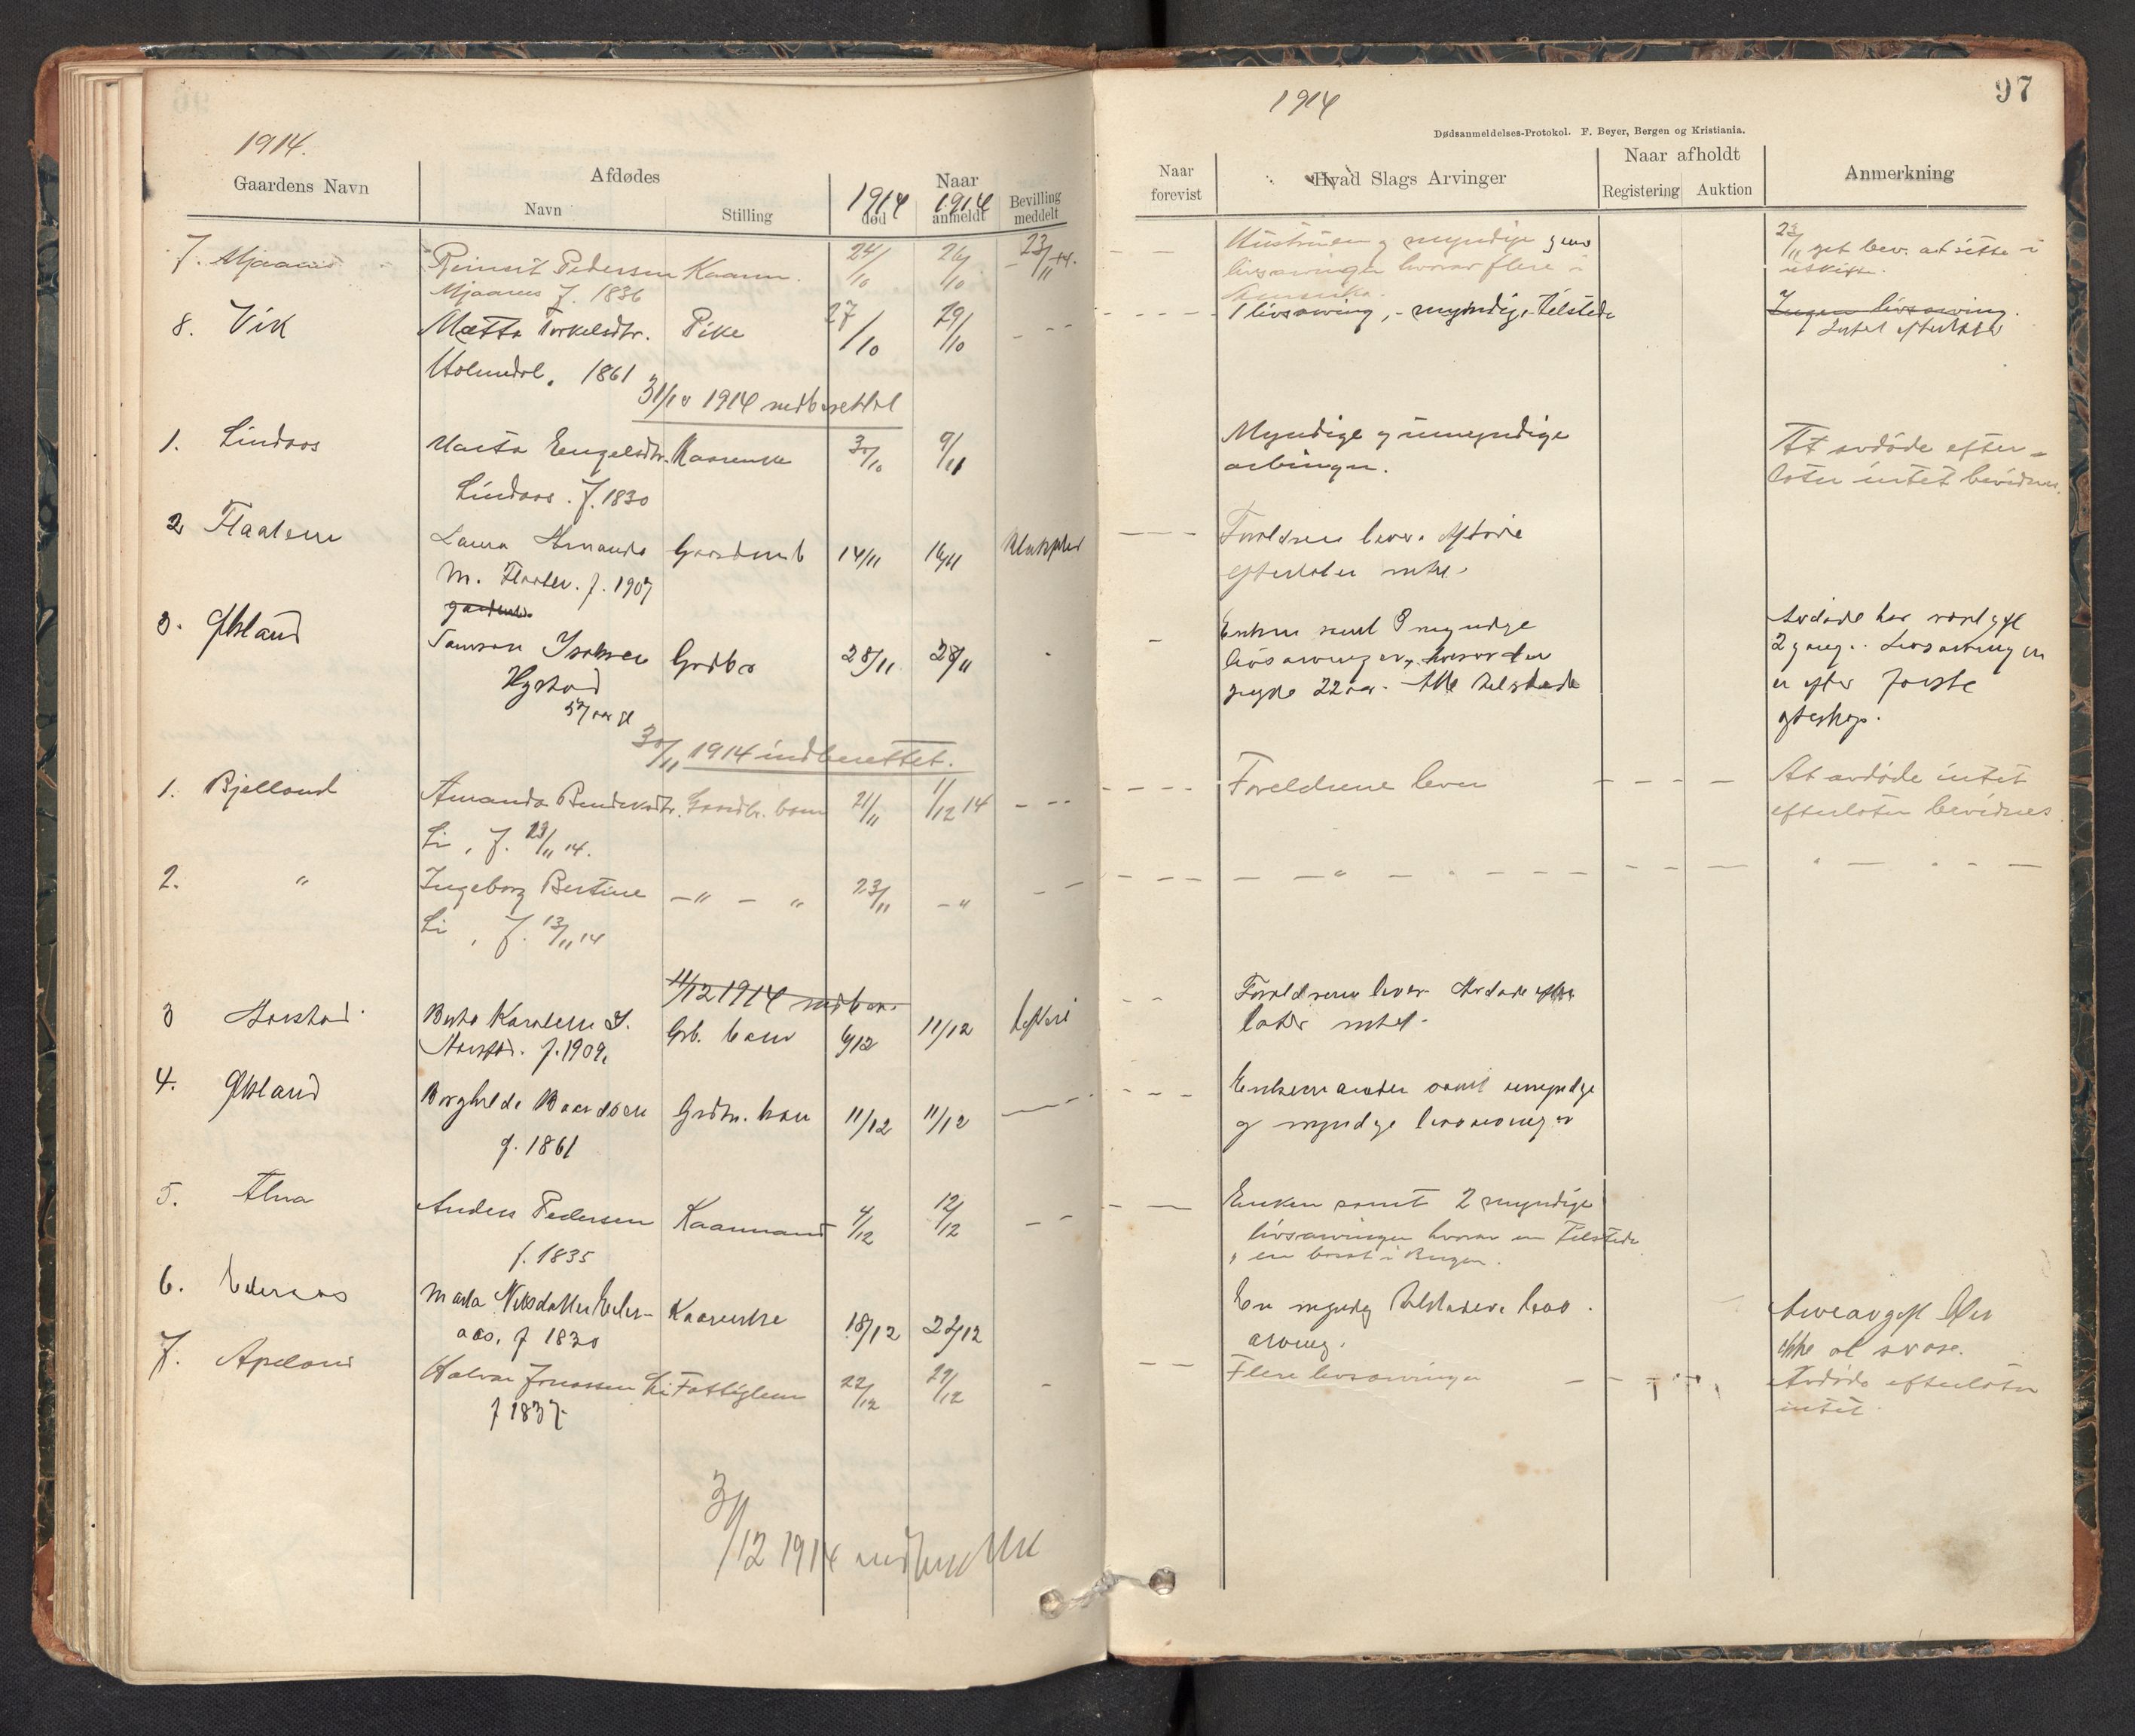 1914.
Gaardens Navn
Afdødes
Navn
Stilling
1914
død
Naar
1914
anmeldt
Bevilling
meddelt
7. Mjaanes
Pedersen Kaarm.
24/10
26/10
23/11 14.
Mjaanes f. 1836
8. Vik
Metta Torkelsdtr.
Pike
27/10
29/10
Holmedal. 1861
31/10 1914 indberettet
1. Lindaas
Marta Engelsdtr.
Kaarenke
30/10
9/11
Lindaas. f. 1830
2 Flaaten
Laura Amanda
Gaardmb
14/11
16/11
M. Flaaten. f. 1907
gaardm.
3. Økland
Samson Isaksen
Grdbr
28/11
28/11
Hystad
57 aar gl
30/11 1914 indberettet.
1. Bjelland
Amanda
Gaardbr. barn
21/11
1/12 14
Li, f. 13/11 14.
2. "
Ingeborg Bertine
-" - "
23/11
- "
Li, f. 13/11 14
11/12 1914 indber.
3 Aarstad
Berta Karoline S.
Grb. barn
6/12
11/12
Aarstad. f. 1909.
4. Økland
Borghilde Baardsen
Grdbr. kone
11/12
11/12
f. 1861
5. Alna
Anders Pedersen
Kaarmand
4/12
12/12
f. 1835
6. Ekeraas
Marta Nilsdatter Eker-
Kaarenke
18/12
22/12
aas. f 1830
7. Apeland
Halvor Jonassen Li
Fattiglem
22/12
29/12
f 1837
31/12 1914 indberettet
1914
97
Dødsanmeldelses-Protokol. F. Beyer, Bergen og Kristiania.
Naar
forevist
Hvad Slags Arvinger
Naar afholdt
Registering
Auktion
Anmerkning
Hustruen og myndige
livsarvinger hvorav flere i
Amerika.
23/11 get bev. at sitte i
uskifte.
1 livsarving, - myndig, tilstede
Ingen livsarving.
Intet efterlatt
Myndige og umyndige
arvinger.
At avdøde efter-
later intet bevidnes.
Foreldrene lever. Afdøde
efterlater intet.
Enken samt 8 myndige
livsarvinger, hvorav den
yngste 22 aar. Alle tilstede
Avdøde har vært gift
2 gang. Livsarvingen
er efter første
egteskap.
Foreldrene lever
At avdøde intet
efterlater bevidnes.
Foreldrene lever Avdøde efter
later intet.
Enkemanden samt umyndige
og myndige livsarvinger
Enken samt 2 myndige
livsarvinger hvorav en tilstede
, en bosat i Bergen.
En myndig tilstedev. livs.
arving.
Arveavgift blir
ikke at svare.
Flere livsarvinger
Avdøde efterlater
intet.